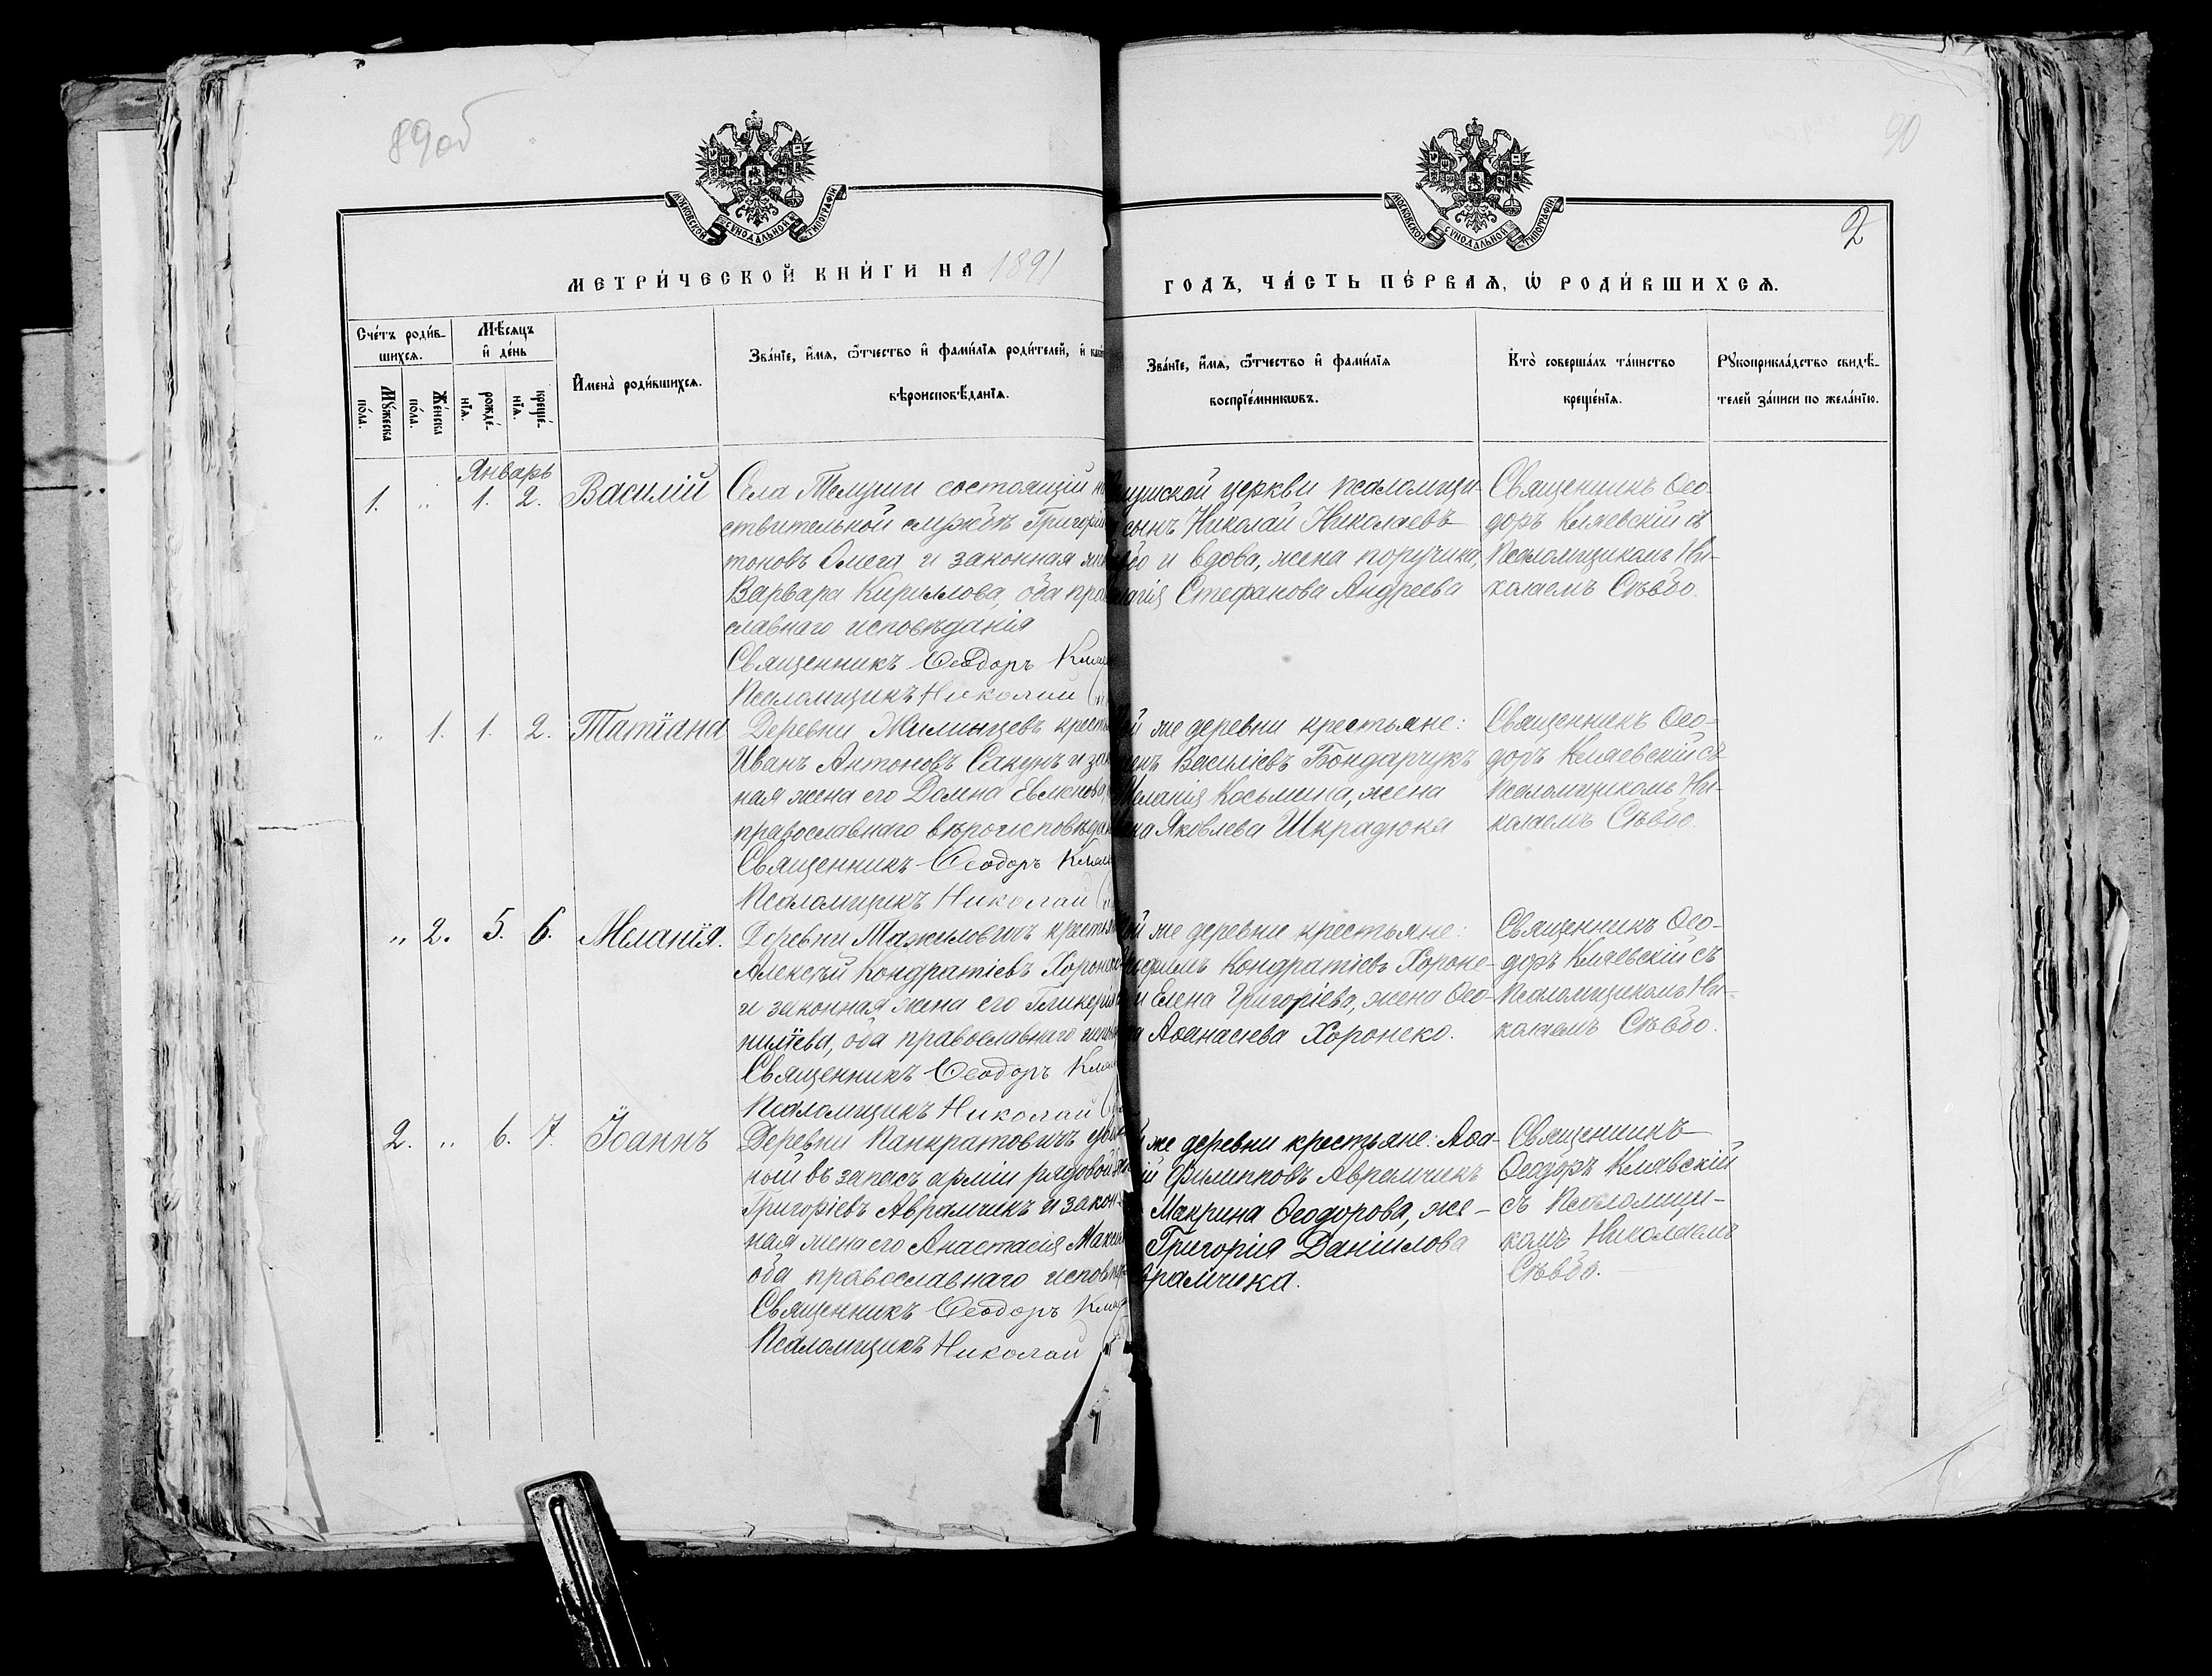 89об
90
2
МОСКОВСКОЙ СѴНОДАЛЬНОЙ ТИПОГРАФІИ
МОСКОВСКОЙ СѴНОДАЛЬНОЙ ТИПОГРАФІИ
МЕТРИ́ЧЕСКОЙ КНИ́ГИ НА 1891
ГОДЪ, ЧА́СТЬ ПЕ́РВАѦ, Ѡ҆ РОДИ́ВШИХСѦ.
Сче́тъ роди́в-
шихсѧ.
Мѣ́сѧцъ
и҆ де́нь
Мꙋ́жеска
по́ла.
Же́нска
по́ла.
рожде́-
нїѧ.
креще́-
нїѧ.
И҆мена̀ роди́вшихсѧ.
Зва́нїе, и҆́мѧ, ѻ҆́тчество и҆ фами́лїѧ роди́телей, и҆
вѣроисповѣ́данїѧ.
Зва́нїе, и҆́мѧ, ѻ҆́тчество и҆ фами́лїѧ
воспрїе́мникѡвъ.
Кто̀ соверша́лъ та́инство
креще́нїѧ.
Рꙋкоприкла́дство свидѣ́-
телей за́писи по жела́нїю.
Январь
1. „ 1. 2. Василій
Села Телуши состоящій
ствительной службѣ
тоновъ Омега и законная
Варвара Кириллова, оба
славнаго исповѣданія
Священникъ Ѳеодоръ
Псаломщикъ Николай
церкви псаломщи-
сынъ Николай Николаевъ
и вдова, жена поручика,
Стефанова Андреева
Священникъ Ѳео-
доръ Кляевскій съ
Псаломщикомъ Ни-
колаемъ Сѣвбо.
„ 1. 1. 2. Татіана
Деревни Жилинцевъ
Иванъ Антоновъ Сакунъ и
ная жена его Домна
православнаго
Священникъ Ѳеодоръ
Псаломщикъ Николай
же деревни крестьяне:
Василіевъ Бондарчукъ
Косьмина, жена
Яковлева Шкрадюка
Священникъ Ѳео-
доръ Кляевскій съ
Псаломщикомъ Ни-
колаемъ Сѣвбо.
„ 2. 5. 6. Меланія.
Деревни Мажиловичъ
Алексѣй Кондратіевъ
и законная жена его
нилiева, оба православнаго
Священникъ Ѳеодоръ
Псаломщикъ Николай
же деревни крестьяне:
Кондратіевъ Хороне-
и Елена Григоріева, жена Ѳео-
Аѳанасіева Хоронеко.
Священникъ Ѳео-
доръ Кляевскій съ
Псаломщикомъ Ни-
колаемъ Сѣвбо.
2. „ 6. 7. Іоаннъ
Деревни Панкратовичъ
ный въ запасъ арміи рядовой
Григоріевъ Аврамчикъ и закон-
ная жена его Анастасія
оба православнаго
Священникъ Ѳеодоръ
Псаломщикъ Николай
же деревни крестьяне: Аѳа-
Филипповъ Аврамчикъ
Макрина Ѳеодорова, же-
Григорія Даніилова
Священникъ
Ѳеодоръ Клявскій
съ Псаломщи-
комъ Николаемъ
Сѣвбо.